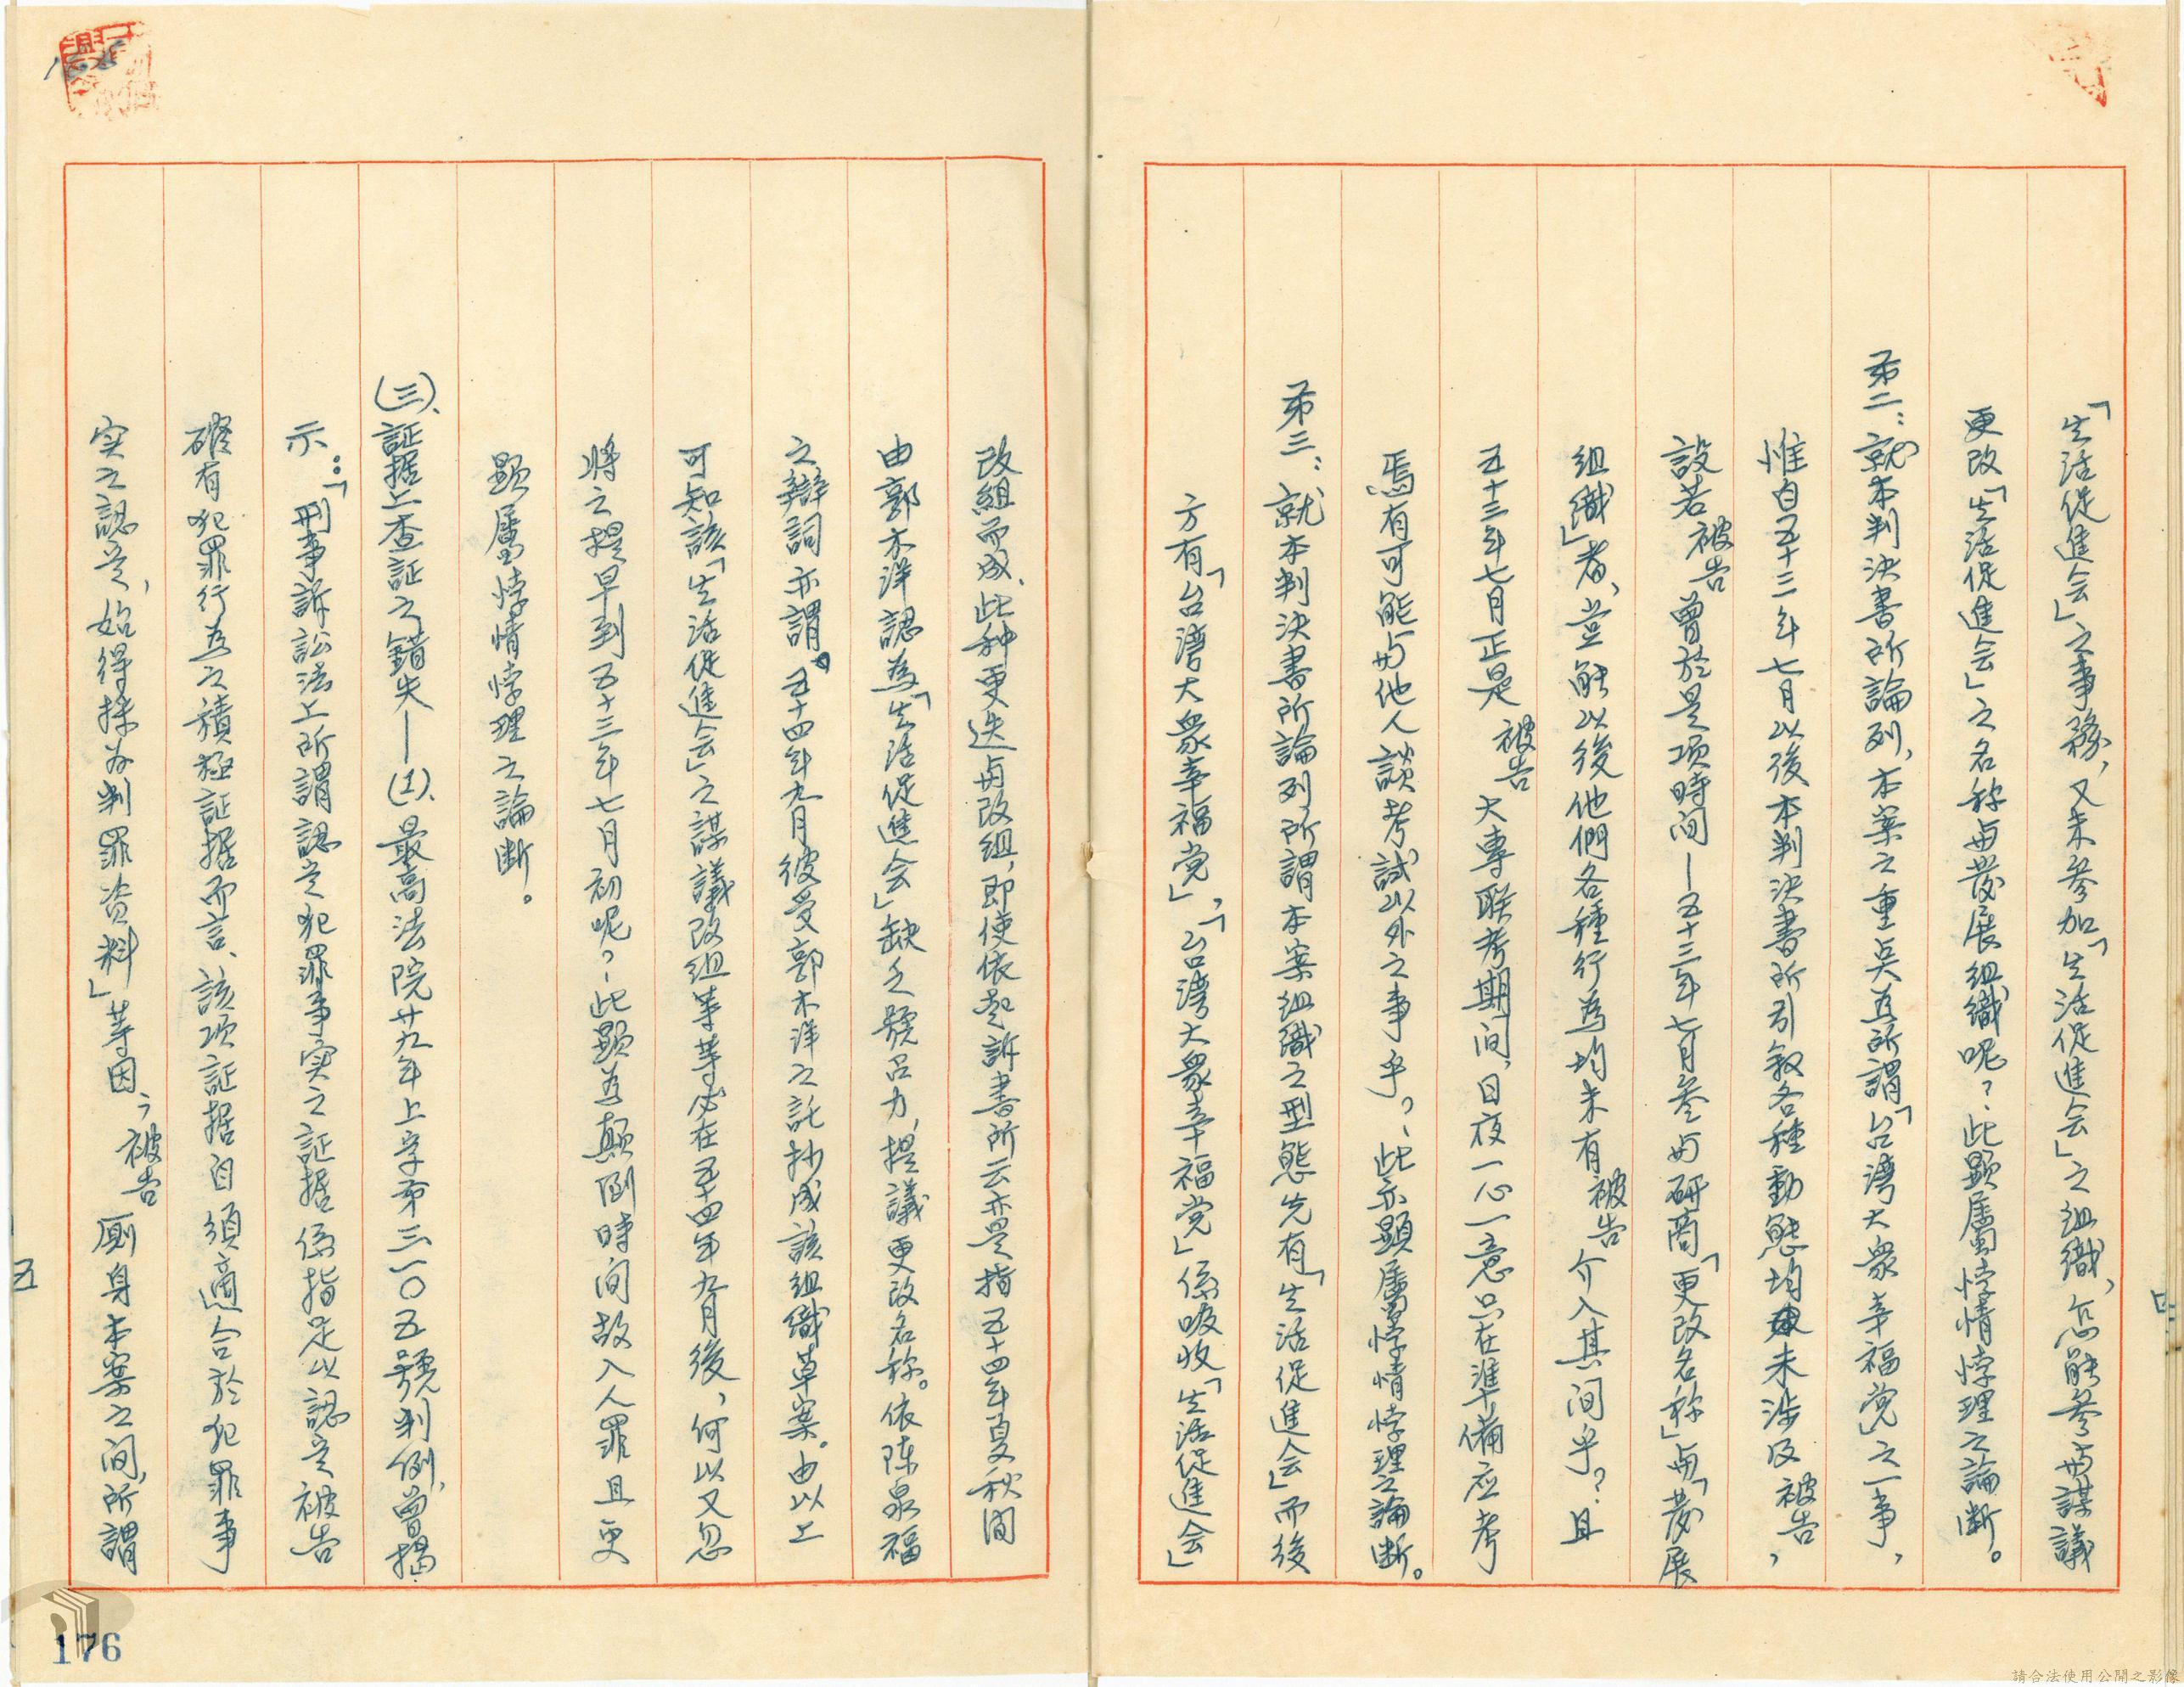 「生活促進会」之事務，又未參加「生活促進会」之組織，怎能參与謀議
更改「生活促進会」之名称与發展組織呢？此顯屬悖情悖理之論断。
第二：就本判決書所論列，本案之重点為所謂「台湾大衆幸福党」之一事，
惟自五十三年七月以後本判決書所引敘各種動態均未涉及被告，
設若被告曾於是項時间—五十三年七月參与研商「更改名称」与「發展
組織」者，豈能以後他們各種行為均未有被告介入其间乎？且
五十三年七月正是被告大專联考期间，日夜一心一意只在準備应考
焉有可能与他人談考試以外之事乎？此亦顯屬悖情悖理之論断。
第三：就本判決書所論列所謂本案組織之型態先有「生活促進会」而後
方有「台湾大衆幸福党」，「台湾大衆幸福党」係吸收「生活促進会」
改組而成，此种更迭与改組，即使依起訴書所云亦是指五十四年夏秋间
由郭木洋認為「生活促進会」缺乏號召力，提議更改名称。依陈泉福
之辯詞亦謂。五十四年九月彼受郭木洋之託抄成該組織草案。由以上
可知該「生活促進会」之謀議改組等等必在五十四年九月後，何以又忽
将之提早到五十三年七月初呢？此顯為顛倒時间故入人罪且更
顯屬悖情悖理之論断。
(三)、証据上查証之錯失——(1)、最高法院廿九年上字第三一〇五號判例，曾揭
示：「刑事訴訟法上所謂認定犯罪事实之証据係指足以認定被告
確有犯罪行為之積極証据而言，該項証据自須適合於犯罪事
实之認定，始得採为判罪资料」等因，被告厠身本案之间，所謂
五
176
請合法使用公開之影像